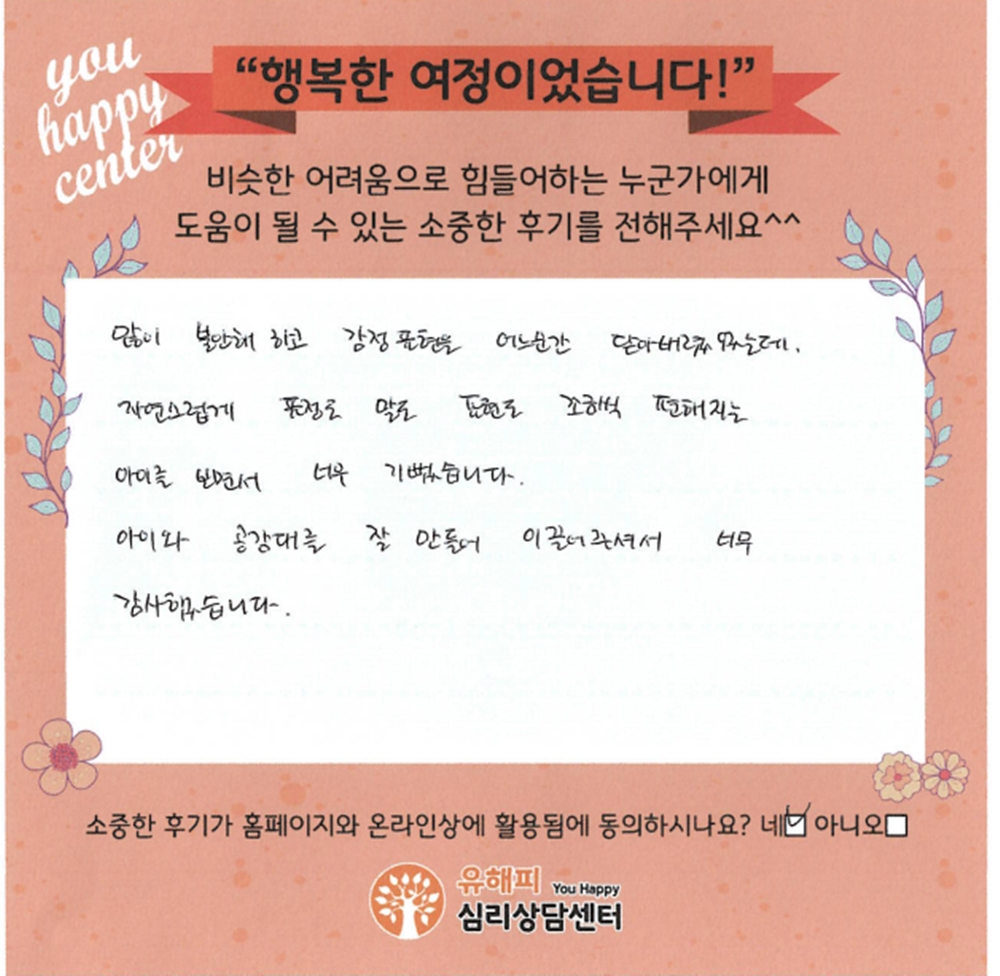 you
happy
center
“행복한 여정이었습니다!”
비슷한 어려움으로 힘들어하는 누군가에게
도움이 될 수 있는 소중한 후기를 전해주세요^^
많이 불안해 하고 감정 표현을 어느순간 닫아버렸었는데,
자연스럽게 표정로 말로 표현로 조금씩 편해지는
아이를 보면서 너무 기뻤습니다.
아이와 공감대를 잘 만들어 이끌어주셔서 너무
감사했습니다.
소중한 후기가 홈페이지와 온라인상에 활용됨에 동의하시나요? 네☑ 아니오☐
유해피 You Happy
심리상담센터